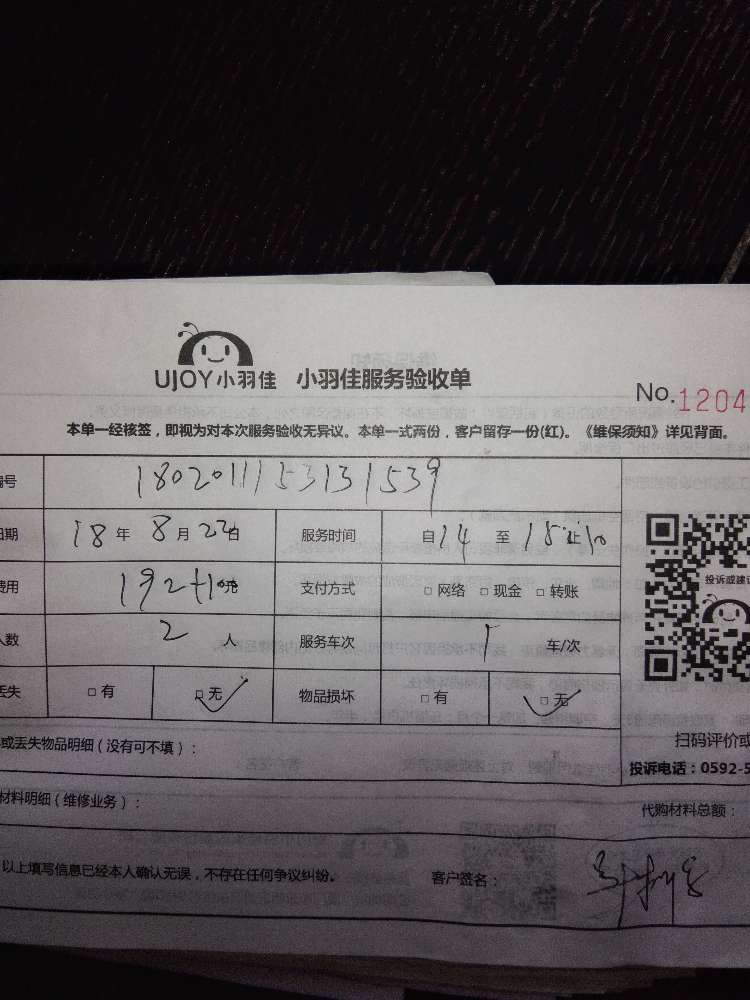 UJOY小羽佳 小羽佳服务验收单
No.1204
本单一经核签，即视为对本次服务验收无异议。本单一式两份，客户留存一份(红)。《维保须知》详见背面。
编号 180201115313 1539
日期 18年 8月22日 服务时间 自14 至15止10
费用 192+10元 支付方式 □网络 □现金 □转账
人数 2人 服务车次 1 车/次
丢失 □有 □无 物品损坏 □有 □无
投诉或建议
扫码评价或
或丢失物品明细（没有可不填）：
投诉电话：0592-5
材料明细（维修业务）：
代购材料总额：
以上填写信息已经本人确认无误，不存在任何争议纠纷。 客户签名：